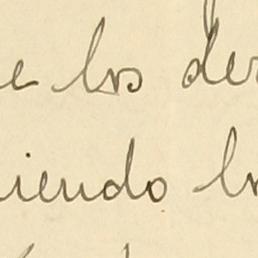 e los der
iendo lo